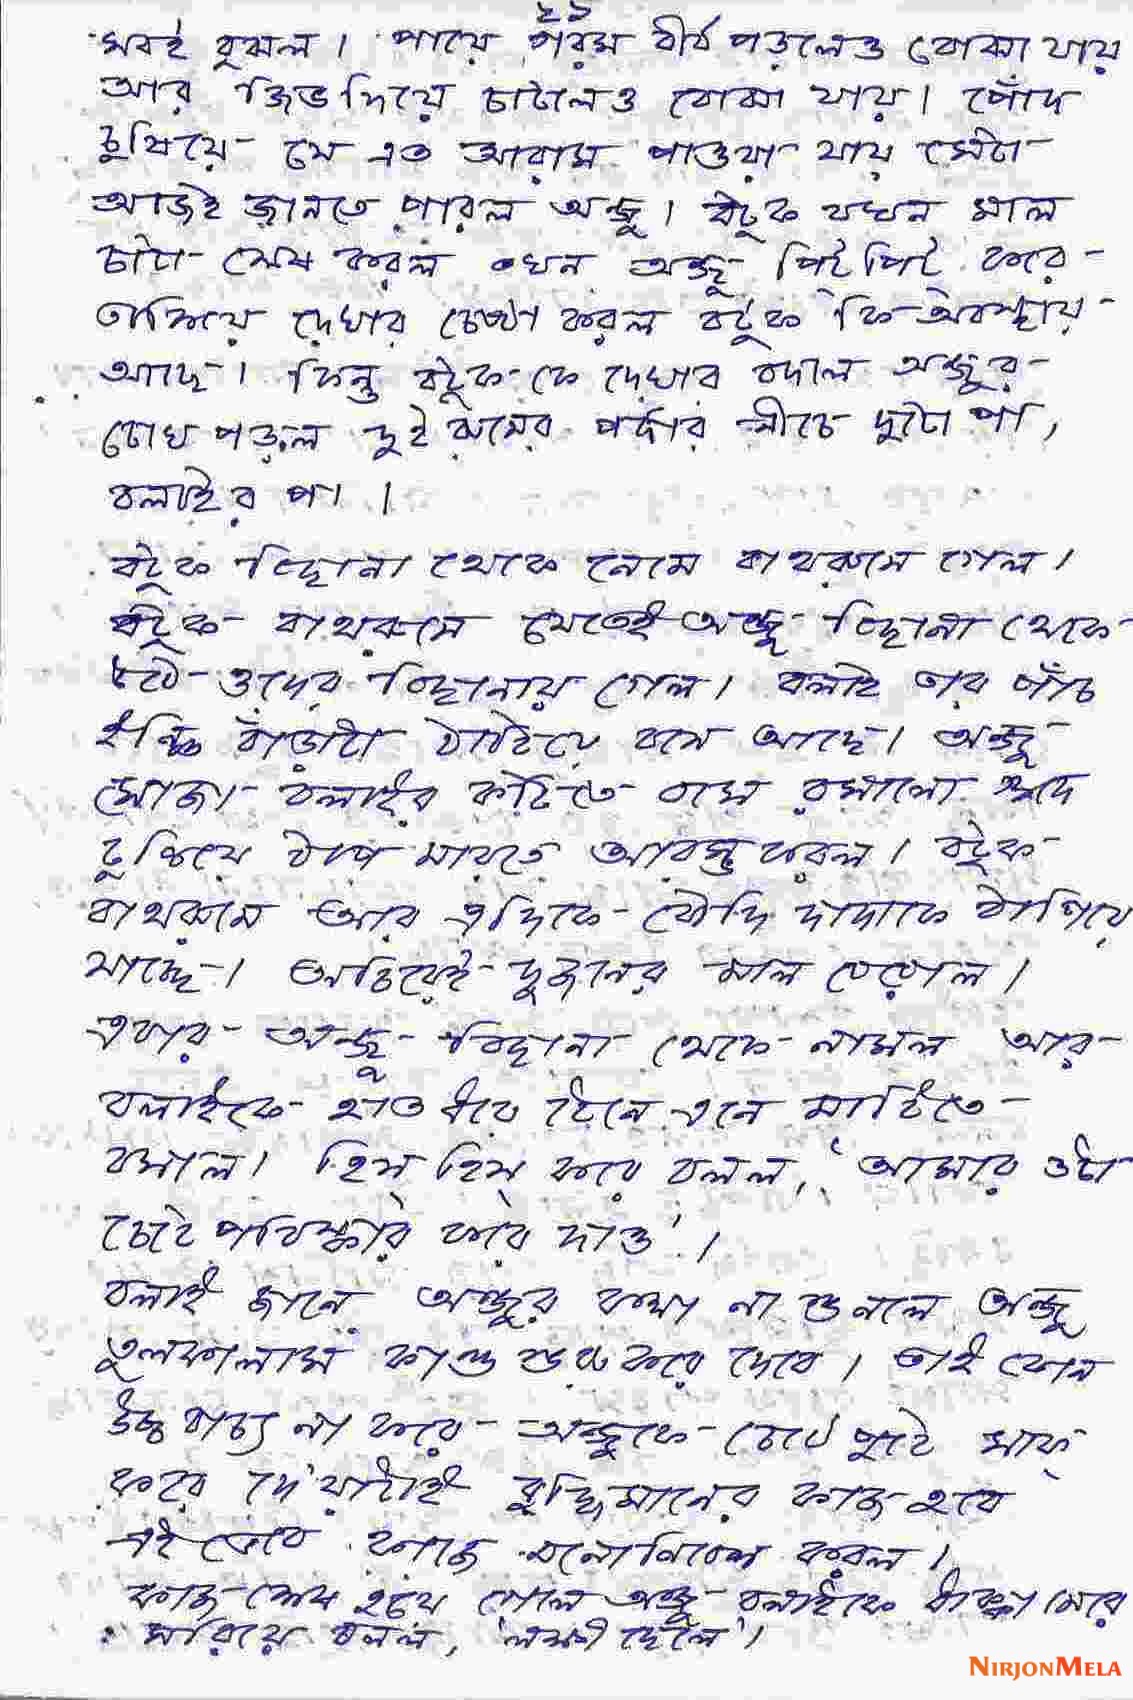 ২১
সবই বুঝল। পায়ে গরম বীর্য পড়লেও বোঝা যায়
আর জিভ দিয়ে চাটলেও বোঝা যায়। পোঁদ
চুষিয়ে যে এত আরাম পাওয়া যায় সেটা
আজই জানতে পারল অন্জু। বটুক যখন মাল
চাটা শেষ করল তখন অন্জু পিট পিট করে
তাকিয়ে দেখার চেষ্টা করল বটুক কি অবস্থায়
আছে। কিন্তু বটুক কে দেখার বদলে অন্জুর
চোখ পড়ল দুই রুমের পর্দার নীচে দুটো পা,
বলাইর পা।
বটুক বিছানা থেকে নেমে বাথরুমে গেল।
বটুক বাথরুমে যেতেই অন্জু বিছানা থেকে
উঠে ওদের বিছানায় গেল। বলাই তার পাঁচ
ইন্চি বাঁড়াটা ঠাটিয়ে বসে আছে। অন্জু
সোজা বলাইর কটিতে বসে রসালো গুদে
ঢুকিয়ে ঠাপ মারতে আরম্ভ করল। বটুক
বাথরুমে আর এদিকে বৌদি দাদাকে ঠাপিয়ে
যাচ্ছে। অচিরেই দুজনের মাল বেরোল।
এবার অন্জু বিছানা থেকে নামল আর
বলাইকে হাত ধরে টেনে এনে মাটিতে
বসাল। হিস্ হিস্ করে বলল, 'আমার ওটা
চেটে পরিস্কার করে দাও'।
বলাই জানে অন্জুর কথা না শুনলে অন্জু
তুলকালাম কান্ড শুরু করে দেবে। তাই কোন
উচ্চ বাচ্য না করে অন্জুকে চেটে পুটে সাফ্
করে দে'য়াটাই বুদ্ধিমানের কাজ হবে
এই ভেবে কাজে মনোনিবেশ করল।
কাজ শেষ হয়ে গেলে অন্জু বলাইকে ধাক্কা মেরে
সরিয়ে বলল, 'লক্ষী ছেলে'।
NIRJONMELA